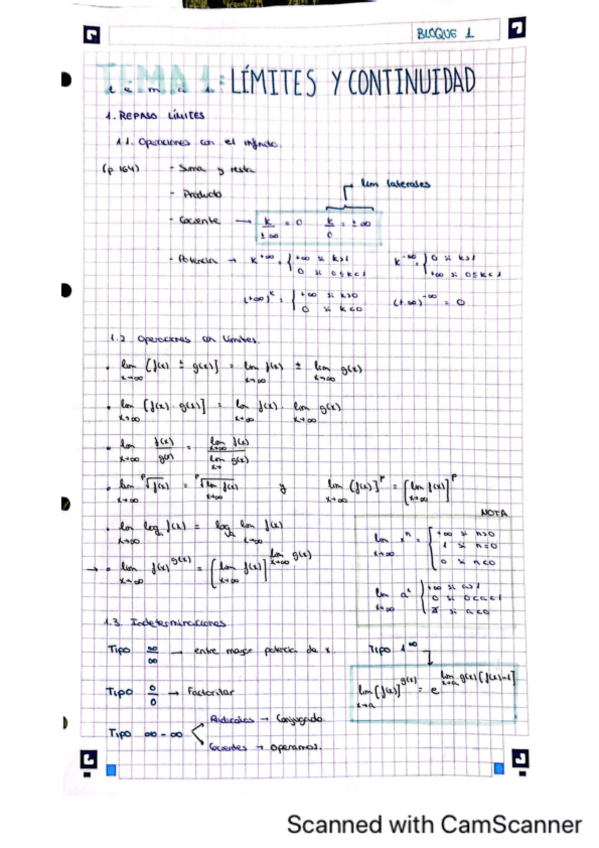 BLOQUE 1
TEMA 1: LÍMITES Y CONTINUIDAD
tema 1
1. REPASO LÍMITES
1.1. Operaciones con el infinito.
(p 164) - Suma y resta
lim laterales
- Producto
- Cociente → k/±∞ = 0 k/0 = ±∞
- Potencia → k^{+∞} = { +∞ si k>1
0 si 0≤k<1
k^{-∞} = { 0 si k>1
+∞ si 0≤k<1
(+∞)^k = { +∞ si k>0
0 si k<0
(+∞)^{-∞} = 0
1.2. Operaciones con límites.
• lim x→∞ [f(x) ± g(x)] = lim x→∞ f(x) ± lim x→∞ g(x)
• lim x→∞ [f(x) · g(x)] = lim x→∞ f(x) · lim x→∞ g(x)
• lim x→∞ f(x)/g(x) = lim x→∞ f(x) / lim x→ g(x)
• lim x→∞ ᵖ√f(x) = ᵖ√lim x→∞ f(x) y lim x→∞ [f(x)]^p = [lim x→∞ f(x)]^p
NOTA
• lim x→∞ log f(x) = log lim x→∞ f(x)
lim x→∞ x^n = { +∞ si n>0
1 si n=0
0 si n<0
→ • lim x→∞ f(x)^{g(x)} = [lim x→∞ f(x)]^{lim x→∞ g(x)}
lim x→∞ a^x { +∞ si a>1
0 si 0<a<1
∄ si a<0
1.3. Indeterminaciones
Tipo ∞/∞ → entre mayor potencia de x.
Tipo 1^∞
Tipo 0/0 → Factorizar
lim x→a [f(x)]^{g(x)} = e^{lim x→a g(x)[f(x)-1]}
Tipo ∞ - ∞
Radicales → Conjugado.
Cocientes → Operamos.
Scanned with CamScanner